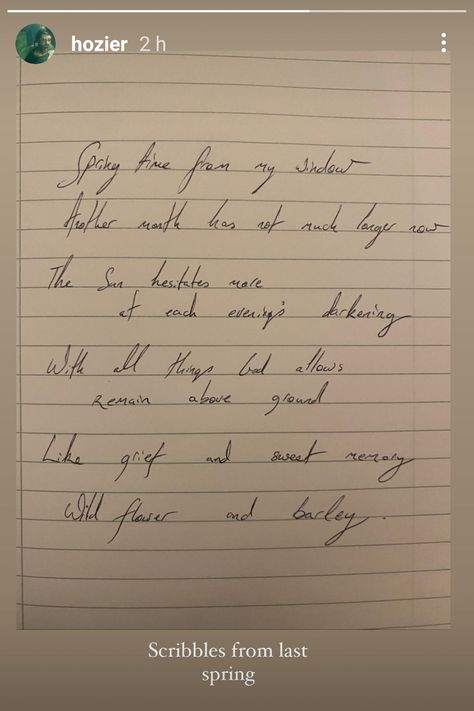 hozier 2 h
Spring time from my window
Another month has not much longer now
The Sun hesitates more
at each evening's darkening
With all things God allows
Remain above ground
Like grief and sweet memory
Wild flower and barley.
Scribbles from last
spring